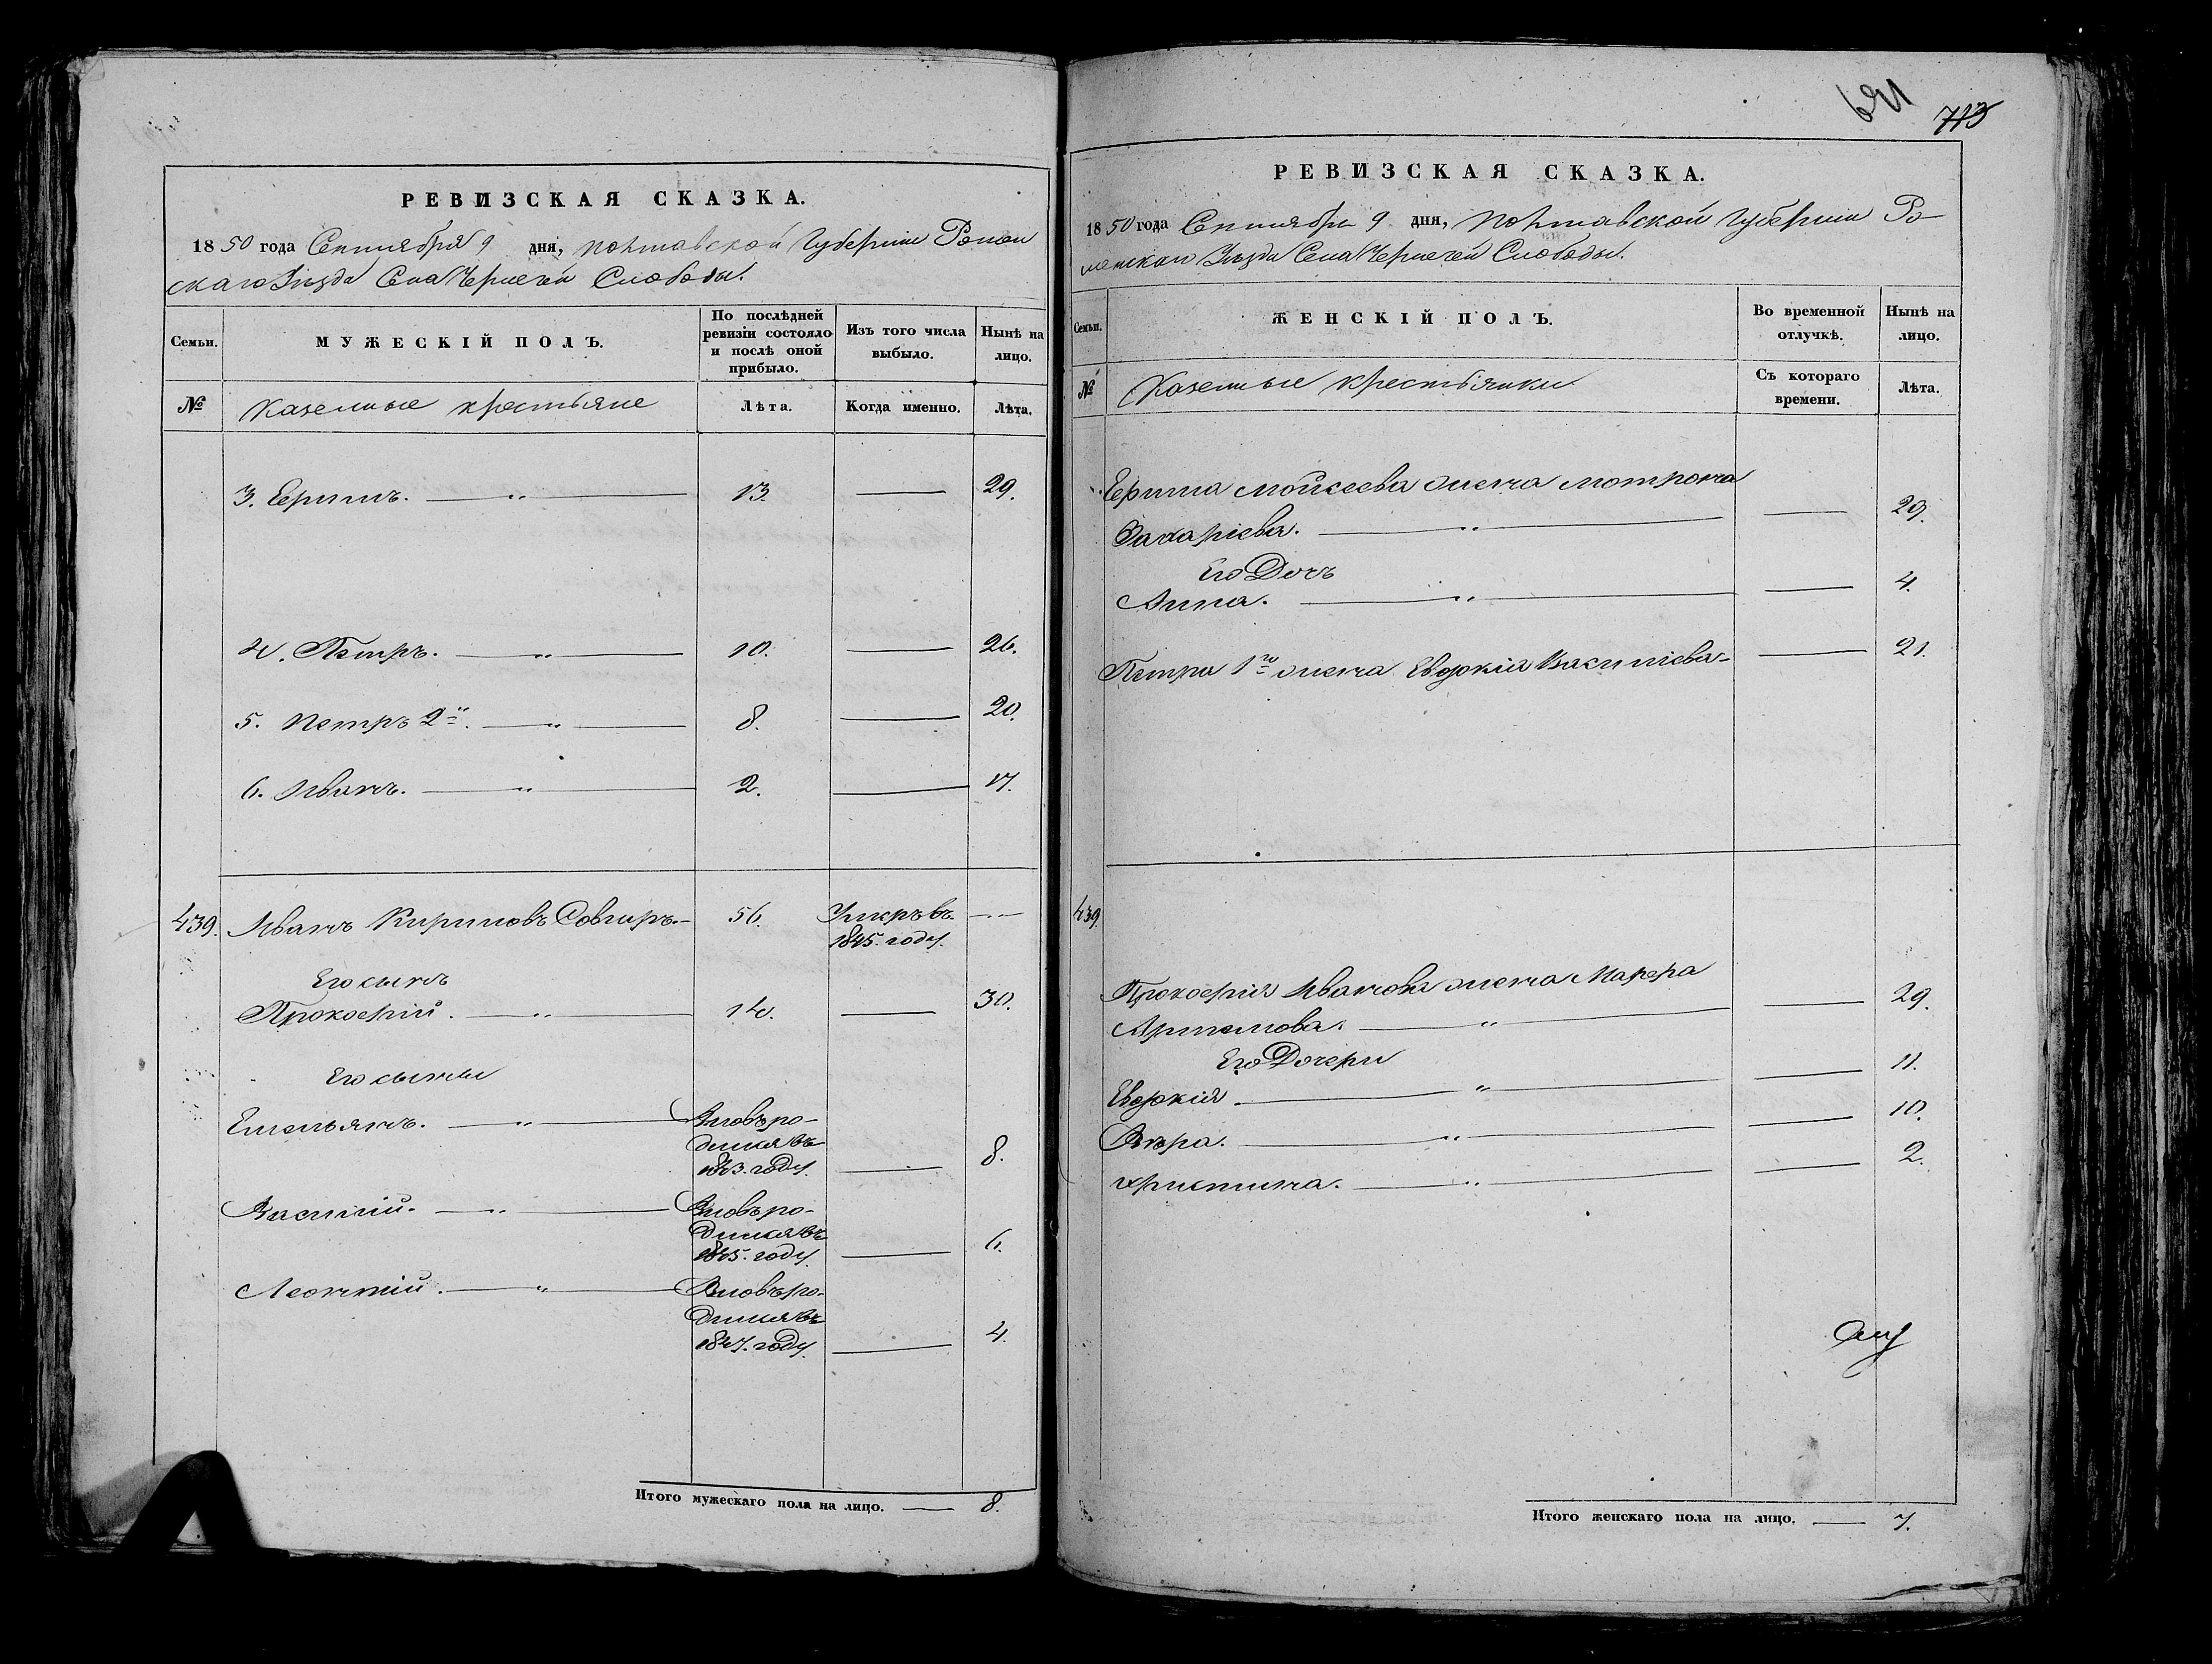 РЕВИЗСКАЯ СКАЗКА.
1850 года Сентября 9 дня, Полтавской Губернии Ромен
скаго Уѣзда Села Чернечей Слободы.
Семьи.
МУЖЕСКІЙ ПОЛЪ.
По послѣдней ревизіи состояло и послѣ оной прибыло.
Изъ того числа выбыло.
Нынѣ на лицо.
№
Казенные крестьяне
Лѣта.
Когда именно.
Лѣта.
3. Ермилъ. — 13. — 29.
4. Петръ. — 10. — 26.
5. Петръ 2й. — 8. — 20.
6. Иванъ. — 2. — 17.
439. Иванъ Кириловъ Совгиръ.— 56. Умеръ въ —
1845. году.
Его сынъ
Прокофій. — 14. — 30.
Его сыны
Емельянъ. — Вновь ро-
дился въ
1843. году. — 8.
Василій. — Вновь ро-
дился въ
1845. году. — 6.
Леонтій. — Вновь ро-
дился въ
1847. году. — 4.
Итого мужескаго пола на лицо. — 8.
691
713
РЕВИЗСКАЯ СКАЗКА.
1850 года Сентября 9 дня, Полтавской Губерніи Ро-
менскаго Уѣзда Села Чернечей Слободы.
Семьи.
ЖЕНСКІЙ ПОЛЪ.
Во временной отлучкѣ.
Нынѣ на лицо.
№
Казенные крестьянки
Съ котораго времени.
Лѣта.
Ермила Мойсеева жена Мотрона
Захаріева. — — 29.
Его Дочь
Анна. — — 4.
Петра 1го жена Евфокія Василіева — — 21.
439.
Прокофія Иванова жена Марфа
Артемова. — — 29.
Его Дочери
Евфокія — — 11.
Вѣра. — — 10.
Христина. — — 2.
Итого женскаго пола на лицо. — 7.